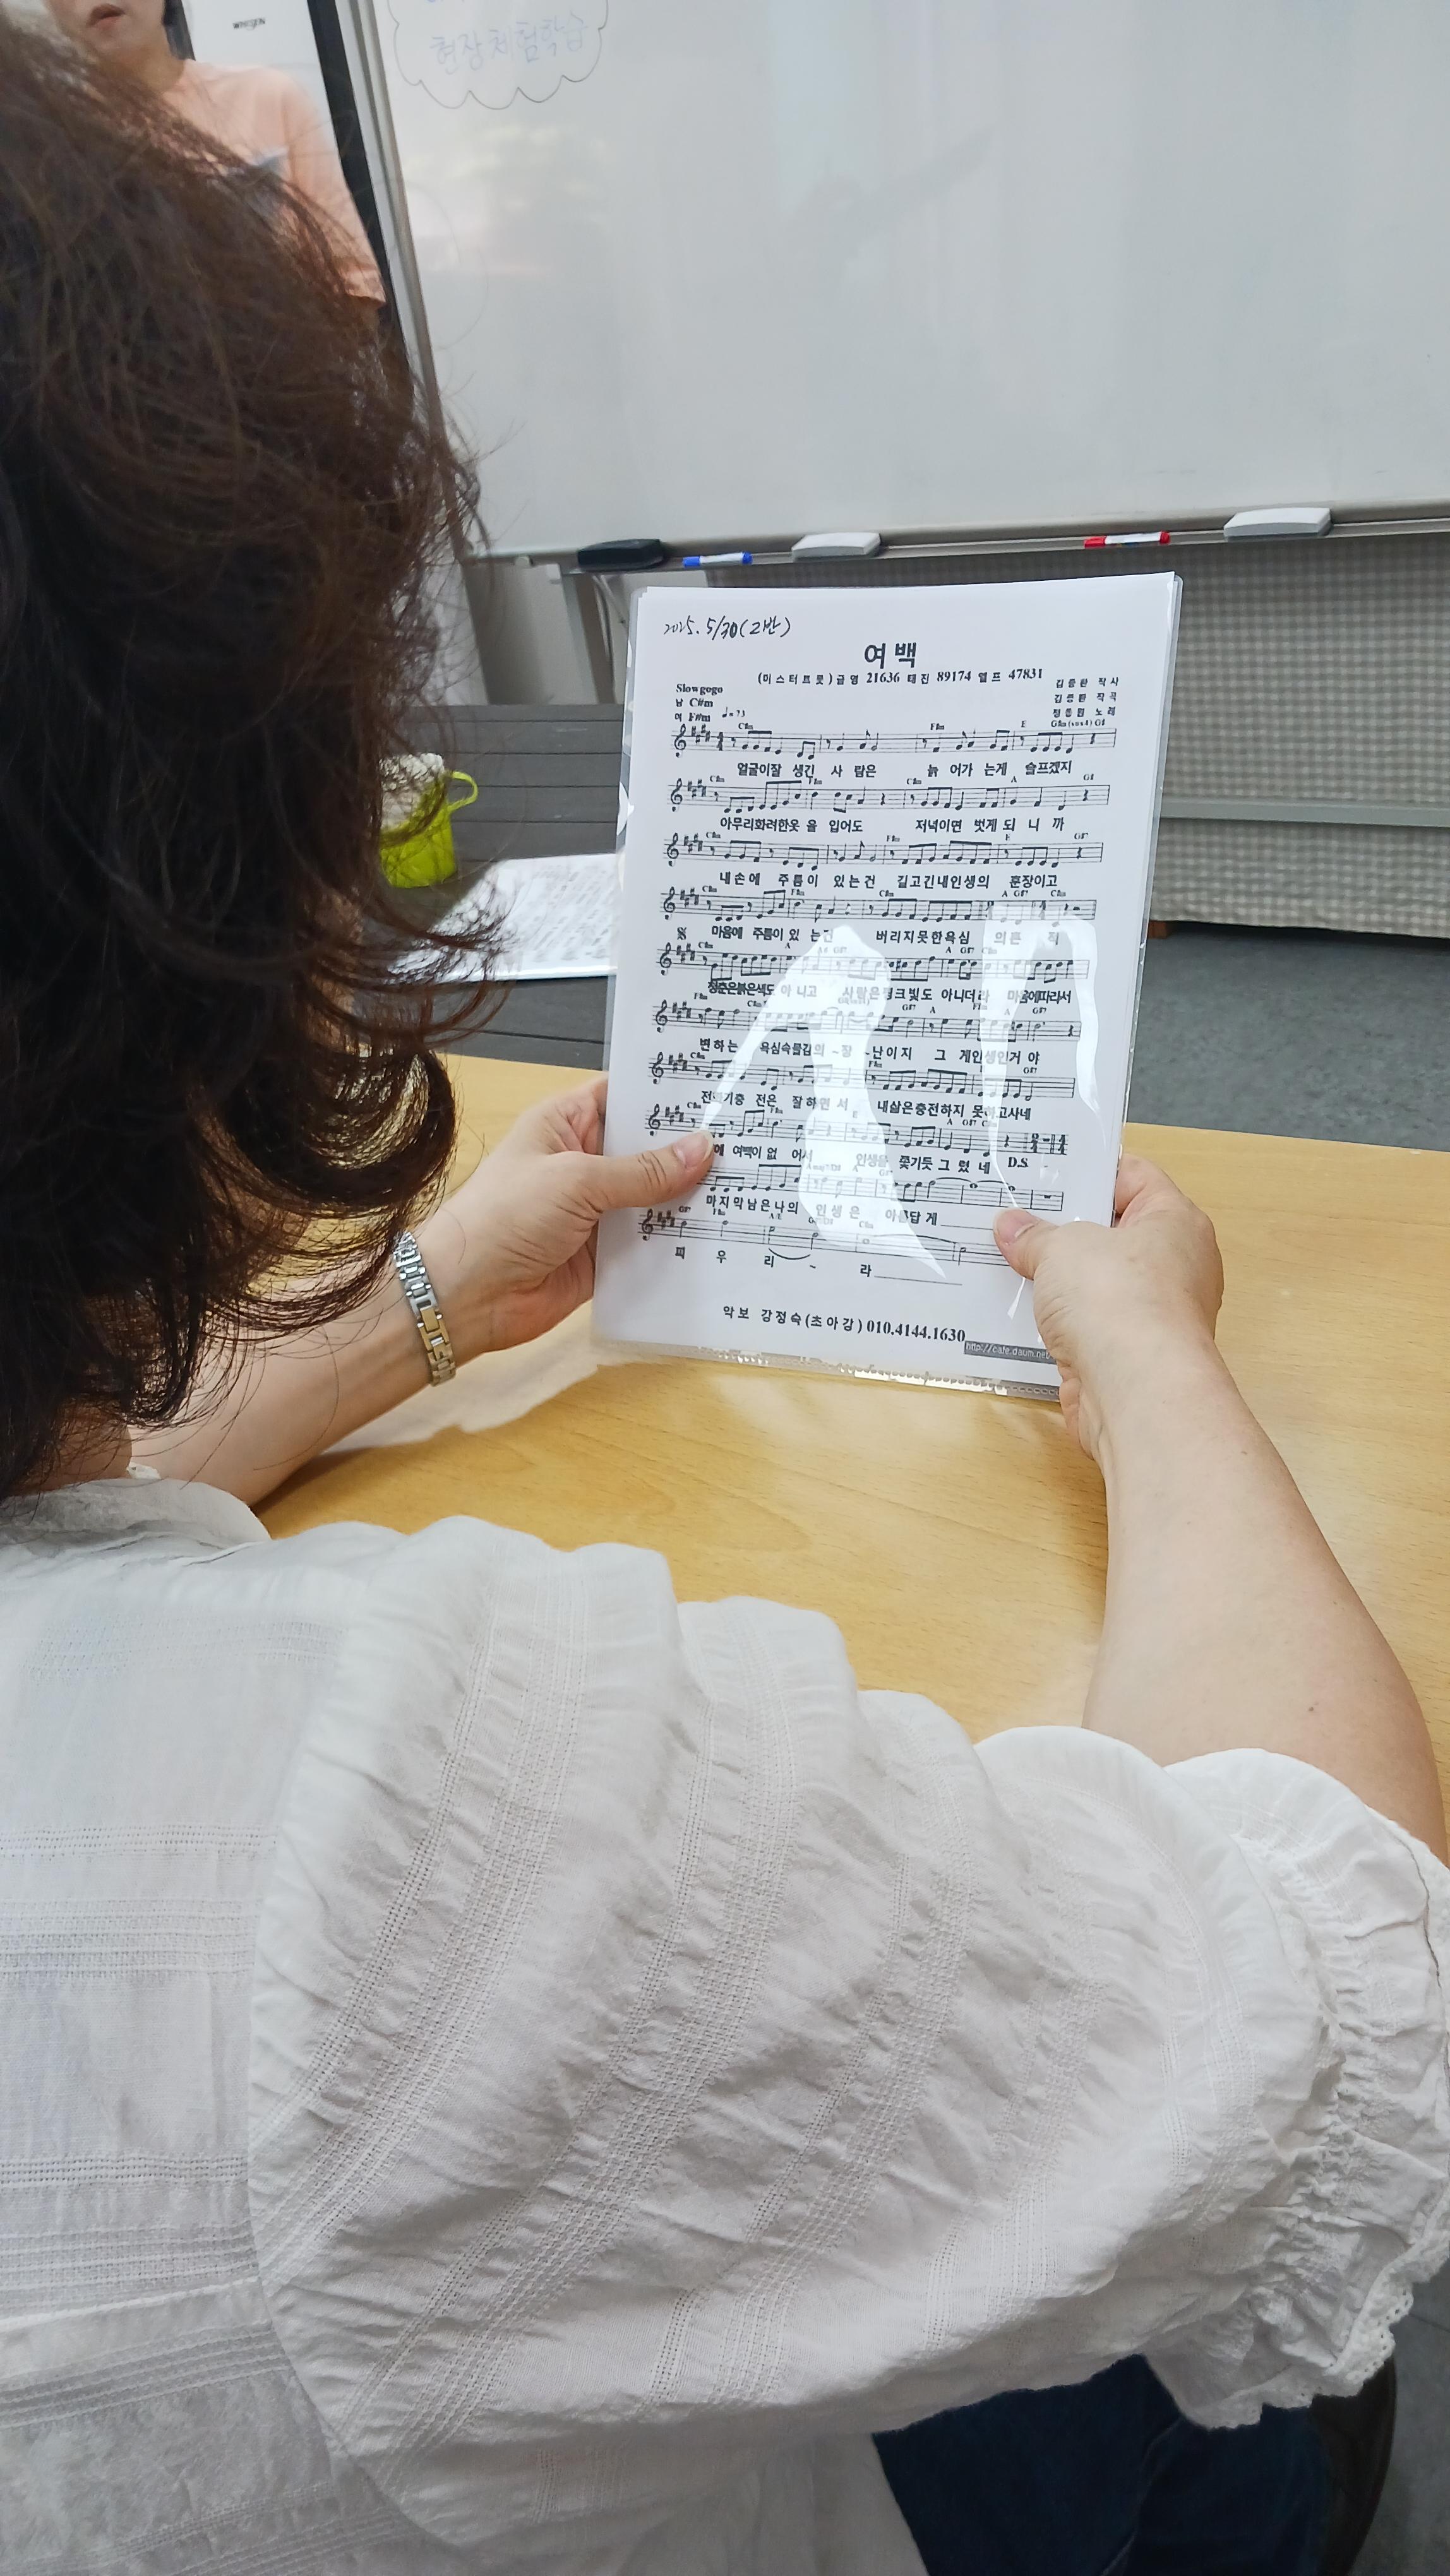 WHISEN
현장체험학습
2025. 5/30 (2반)
여백
(미스터트롯) 금영 21636 태진 89174 엘프 47831
김종환 작사
김종환 작곡
정동원 노래
Slow gogo
남 C#m
여 F#m ♩=73
얼굴이잘 생긴 사 람은 늙 어가 는게 슬프겠지
아무리화려한옷 을 입어도 저녁이면 벗게 되 니 까
내손에 주름이 있는건 길고긴내인생의 훈장이고
마음에 주름이 있 는건 버리지못한욕심 의흔 적
청춘은붉은색도 아 니고 사랑은핑크빛도 아니더라 마음에따라서
변하는 욕심속물감의 ~장 ~난이지 그 게인생인거 야
전화기충 전은 잘하면 서 내삶은충전하지 못하고사네
에 여백이 없 어서 인생을 쫓기듯 그 렸 네 D.S.
마지막남은나의 인생은 아름답 게
피 우 리 ~ 라
악보 강정숙(초아강) 010.4144.1630
http://cafe.daum.net